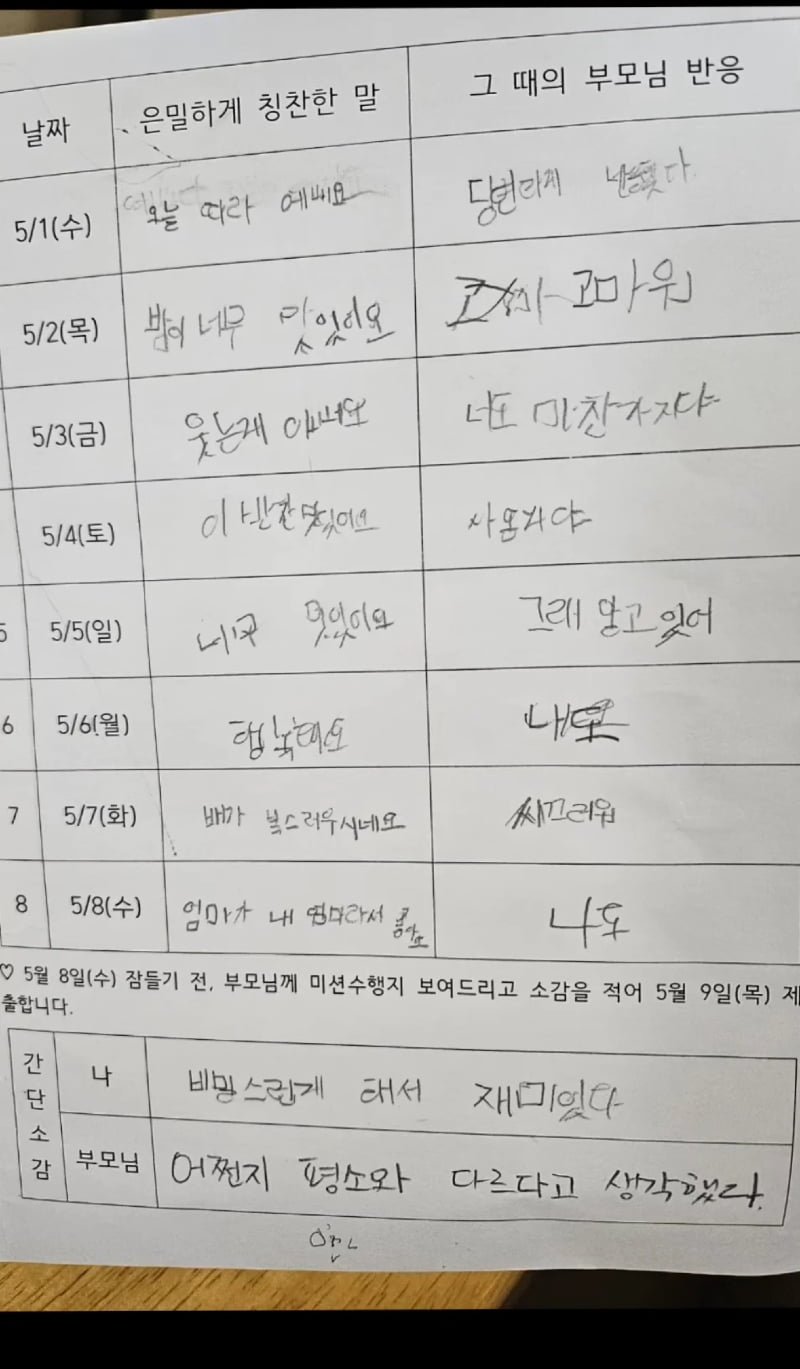 날짜 은밀하게 칭찬한 말 그 때의 부모님 반응
5/1(수) 오늘 따라 예뻐요
5/2(목) 밥이 너무 맛있어요 고마워
5/3(금) 웃는게 너도 마찬가지야
5/4(토) 이 반찬 맛있어요
5 5/5(일) 너무 맛있어요 그래 알고 있어
6 5/6(월) 내도
7 5/7(화) 배가 복스러우시네요 씨끄러워
8 5/8(수) 엄마가 내 엄마라서 나도
♡ 5월 8일(수) 잠들기 전, 부모님께 미션수행지 보여드리고 소감을 적어 5월 9일(목) 제
출합니다.
간단소감
나 비밍스런게 태서 재미있다
부모님 어쩐지 평소와 다르다고 생각했다.